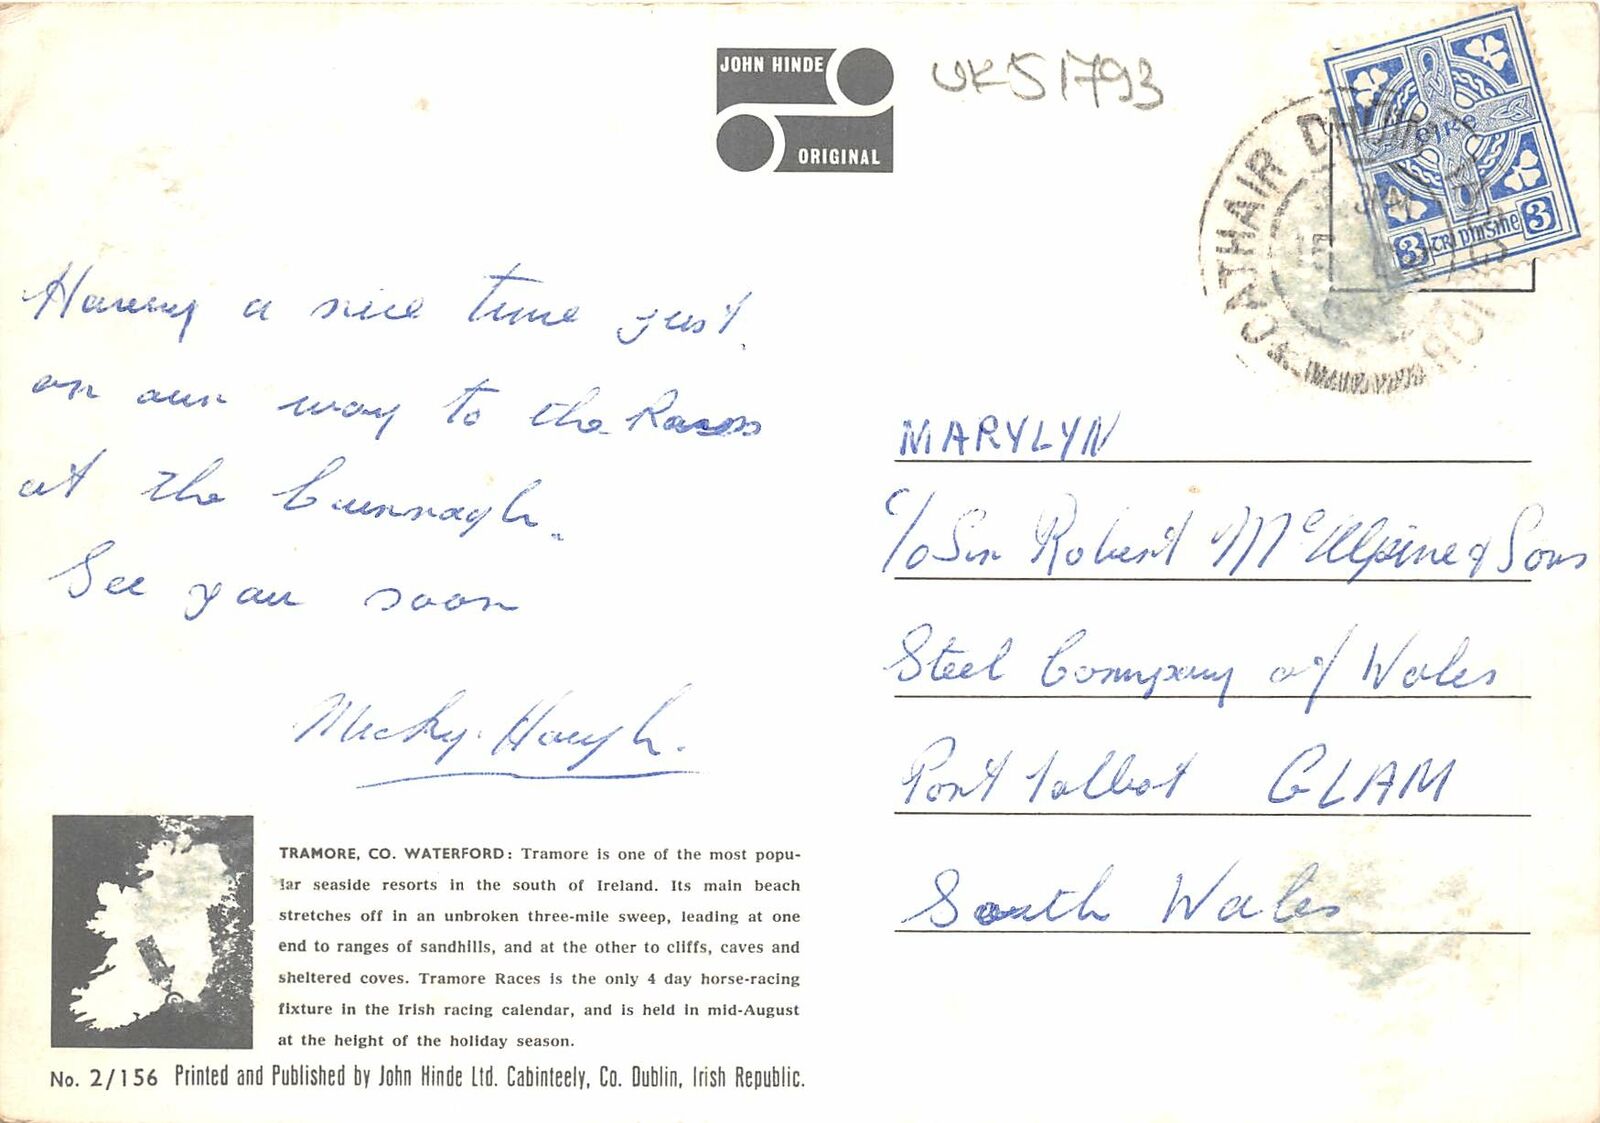 JOHN HINDE
ORIGINAL
UK51793
CATHAIR DHÚN
éire
3 trí pinsine 3
Having a nice time just
on our way to the Races
at the Curragh.
See you soon
Micky Hough.
MARYLYN
c/o Sir Robert McAlpine & Sons
Steel Company of Wales
Port Talbot GLAM
South Wales
TRAMORE, CO. WATERFORD: Tramore is one of the most popu-
lar seaside resorts in the south of Ireland. Its main beach
stretches off in an unbroken three-mile sweep, leading at one
end to ranges of sandhills, and at the other to cliffs, caves and
sheltered coves. Tramore Races is the only 4 day horse-racing
fixture in the Irish racing calendar, and is held in mid-August
at the height of the holiday season.
No. 2/156 Printed and Published by John Hinde Ltd. Cabinteely, Co. Dublin, Irish Republic.